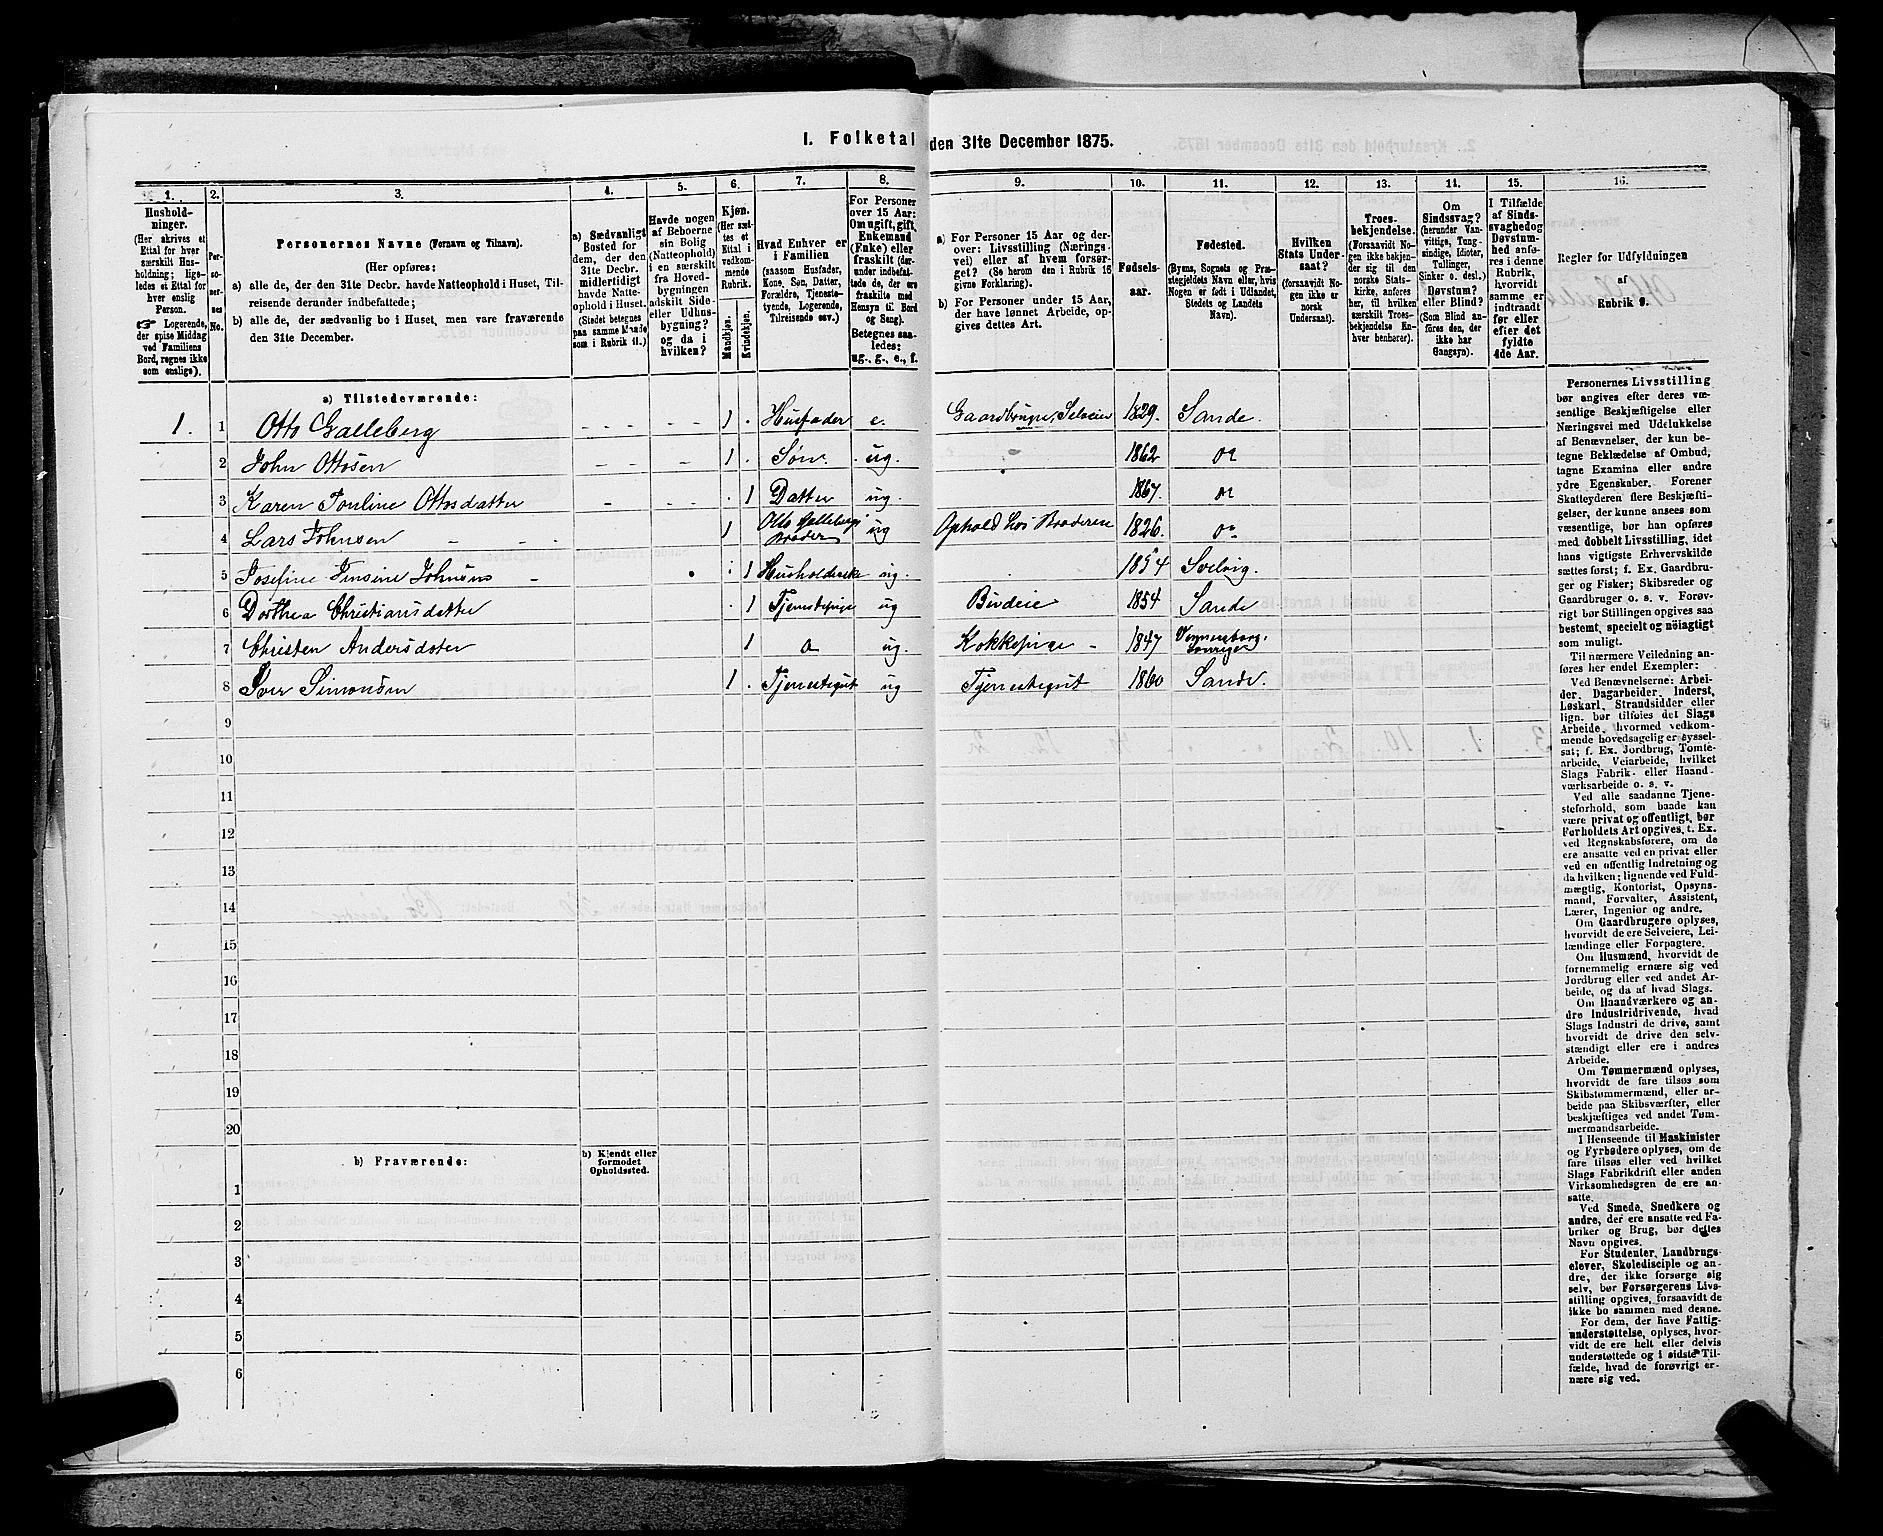 I. Folketal den 31te December 1875.
1. 2. 3. 4. 5. 6. 7. 8. 9. 10. 11. 12. 13. 14. 15. 16.
Hushold-
ninger.
(Her skrives et
Ettal for hver
særskilt Hus-
holdning; lige-
ledes et Ettal for
hver enslig
Person.
☞ Logerende,
der spise Middag
ved Familiens
Bord, regnes ikke
som enslige).
Per-
so-
ner-
nes
No.
Personernes Navne (Fornavn og Tilnavn).
(Her opføres:
a) alle de, der den 31te Decbr. havde Natteophold i Huset, Til-
reisende derunder indbefattede;
b) alle de, der sædvanlig bo i Huset, men vare fraværende
den 31te December.
a) Sædvanligt
Bosted for
dem, der den
31te Decbr.
midlertidigt
havde Natte-
ophold i Huset.
(Stedet betegnes
paa samme Maade
som i Rubrik 11.)
Havde nogen
af Beboerne
sin Bolig
(Natteophold)
i en særskilt
fra Hoved-
bygningen
adskilt Side-
eller Udhus-
bygning?
og da i
hvilken?
Kjøn.
(Her sæt-
tes et
Ettal i
vedkom-
mende
Rubrik.
Mandkjøn.
Kvindekjøn.
Hvad Enhver er
i Familien
(saasom Husfader,
Kone, Søn, Datter,
Forældre, Tjeneste-
tyende, Logerende,
Tilreisende osv.)
For Personer
over 15 Aar:
Om ugift, gift,
Enkemand
(Enke) eller
fraskilt (der-
under indbefat-
tede de, som
ere fraskilte med
Hensyn til Bord
og Seng).
Betegnes saa-
ledes:
ug., g., e., f.
a) For Personer 15 Aar og der-
over: Livsstilling (Nærings-
vei) eller af hvem forsør-
get? (Se herom den i Rubrik 16
givne Forklaring).
b) For Personer under 15 Aar,
der have lønnet Arbeide, op-
gives dettes Art.
Fødsels-
aar.
Fødested.
(Byens, Sognets og Præ-
stegjeldets Navn eller, hvis
Nogen er født i Udlandet,
Stedets og Landets
Navn).
Hvilken
Stats Under-
saat?
(forsaavidt No-
gen ikke er
norsk
Undersaat).
Troes-
bekjendelse.
(Forsaavidt No-
gen ikke bekjen-
der sig til den
norske Stats-
kirke, anføres
her, til hvilken
særskilt Troes-
bekjendelse En-
hver henhører).
Om
Sindssvag?
(herunder Van-
vittige, Tung-
sindige, Idioter,
Tullinger,
Sinker o. desl.)
Døvstum?
eller Blind?
(Som Blind an-
føres den, der
ikke har
Gangsyn).
I Tilfælde
af Sinds-
svaghed og
Døvstum-
hed anfø-
res i denne
Rubrik,
hvorvidt
samme er
indtraadt
før eller
efter det
fyldte
4de Aar.
Regler for Udfyldningen
af
Rubrik 9.
a) Tilstedeværende:
1. 1 Otto Galleberg 1 Husfader e. Gaardbruger, Selveier 1829. Sande.
2 John Ottosen 1 Søn ug. 1862
3 Karen Pauline Ottosdatter 1 Datter ug. 1867.
4 Lars Johnsen 1 Otto Gallebergs Broder ug Ophold hos Broderen 1826.
5 Josefine Jensine Johnsen 1 Husholderske ug. 1854 Svelvig.
6 Dorthea Christiansdatter 1 Tjenestepige ug Budeie 1854 Sande
7 Christen Andersdatter 1 ug. Kokkepige 1847
8 Iver Simonsen 1 Tjenestegut ug Tjenestegut 1860 Sande.
9
10
11
12
13
14
15
16
17
18
19
20
b) Fraværende:
b) Kjendt eller
formodet
Opholdssted.
1
2
3
4
5
6
Personernes Livsstilling
bør angives efter deres væ-
sentlige Beskjæftigelse eller
Næringsvei med Udelukkelse
af Benævnelser, der kun be-
tegne Beklædelse af Ombud,
tagne Examina eller andre
ydre Egenskaber. Forener
Skatteyderen flere Beskjæfti-
gelser, der kunne ansees som
væsentlige, bør han opføres
med dobbelt Livsstilling, idet
hans vigtigste Erhvervskilde
sættes først; f. Ex. Gaardbru-
ger og Fisker; Skibsreder og
Gaardbruger o. s. v. Forøv-
rigt bør Stillingen opgives saa
bestemt, specielt og nøiagtigt
som muligt.
Til nærmere Veiledning an-
føres her endel Exempler:
Ved Benævnelserne: Arbei-
der, Dagarbeider, Inderst,
Løskarl, Strandsidder eller
lign. bør tilføies det Slags
Arbeide, hvormed vedkom-
mende hovedsagelig er syssel-
sat; f. Ex. Jordbrug, Tømte-
arbeide, Veiarbeide, hvilket
Slags Fabrik- eller Haand-
værksarbeide o. s. v.
Ved alle saadanne Tjene-
steforhold, som baade kan
være privat og offentligt, bør
Forholdets Art opgives, t. Ex.
ved Regnskabsførere, om de
ere ansatte ved en privat eller
ved en offentlig Indretning og
da hvilken; lignende ved Fuld-
mægtig, Kontorist, Opsyns-
mand, Forvalter, Assistent,
Lærer, Ingeniør og andre.
Om Gaardbrugere oplyses,
hvorvidt de ere Selveiere, Lei-
lændinge eller Forpagtere.
Om Husmænd, hvorvidt de
fornemmelig ernære sig ved
Jordbrug eller ved andet Ar-
beide, og da af hvad Slags.
Om Haandværkere og an-
dre Industridrivende, hvad
Slags Industri de drive, samt
hvorvidt de drive den selv-
stændigt eller ere i andres
Arbeide.
Om Tømmermænd oplyses,
hvorvidt de fare tilsøs som
Skibstømmermænd, eller ar-
beide paa Skibsværfter, eller
beskjæftiges ved andet Tøm-
mermandsarbeide.
I Henseende til Maskinister
og Fyrbødere oplyses, om de
fare tilsøs eller ved hvilket
Slags Fabrikdrift eller anden
Virksomhedsgren de ere an-
satte.
Ved Smede, Snedkere og
andre, der ere ansatte ved Fa-
briker og Brug, bør dettes
Navn opgives.
For Studenter, Landbrugs-
elever, Skoledisciple og an-
dre, der ikke forsørge sig
selv, bør Forsørgerens Livs-
stilling opgives, forsaavidt de
ikke bo sammen med denne.
For dem, der have Fattig-
understøttelse, oplyses, hvor-
vidt de ere helt eller delvis
understøttede og i sidste Til-
fælde, hvad de forøvrigt er-
nære sig ved.